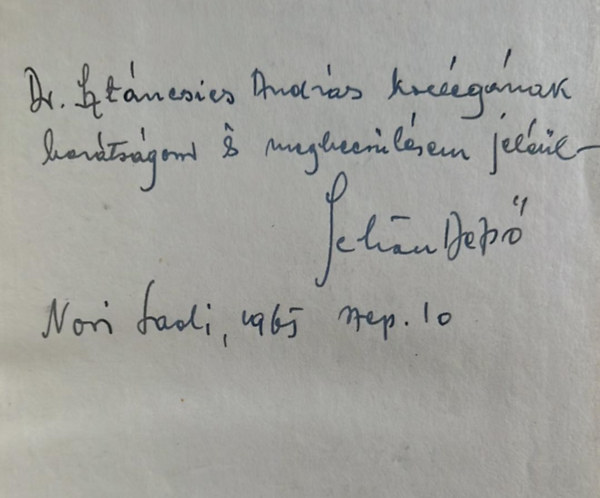 Dr. Sztáncsics András kollégának
barátságom és megbecsülésem jeléül –
Dezső
Novi Sadi, 1965 szep. 10